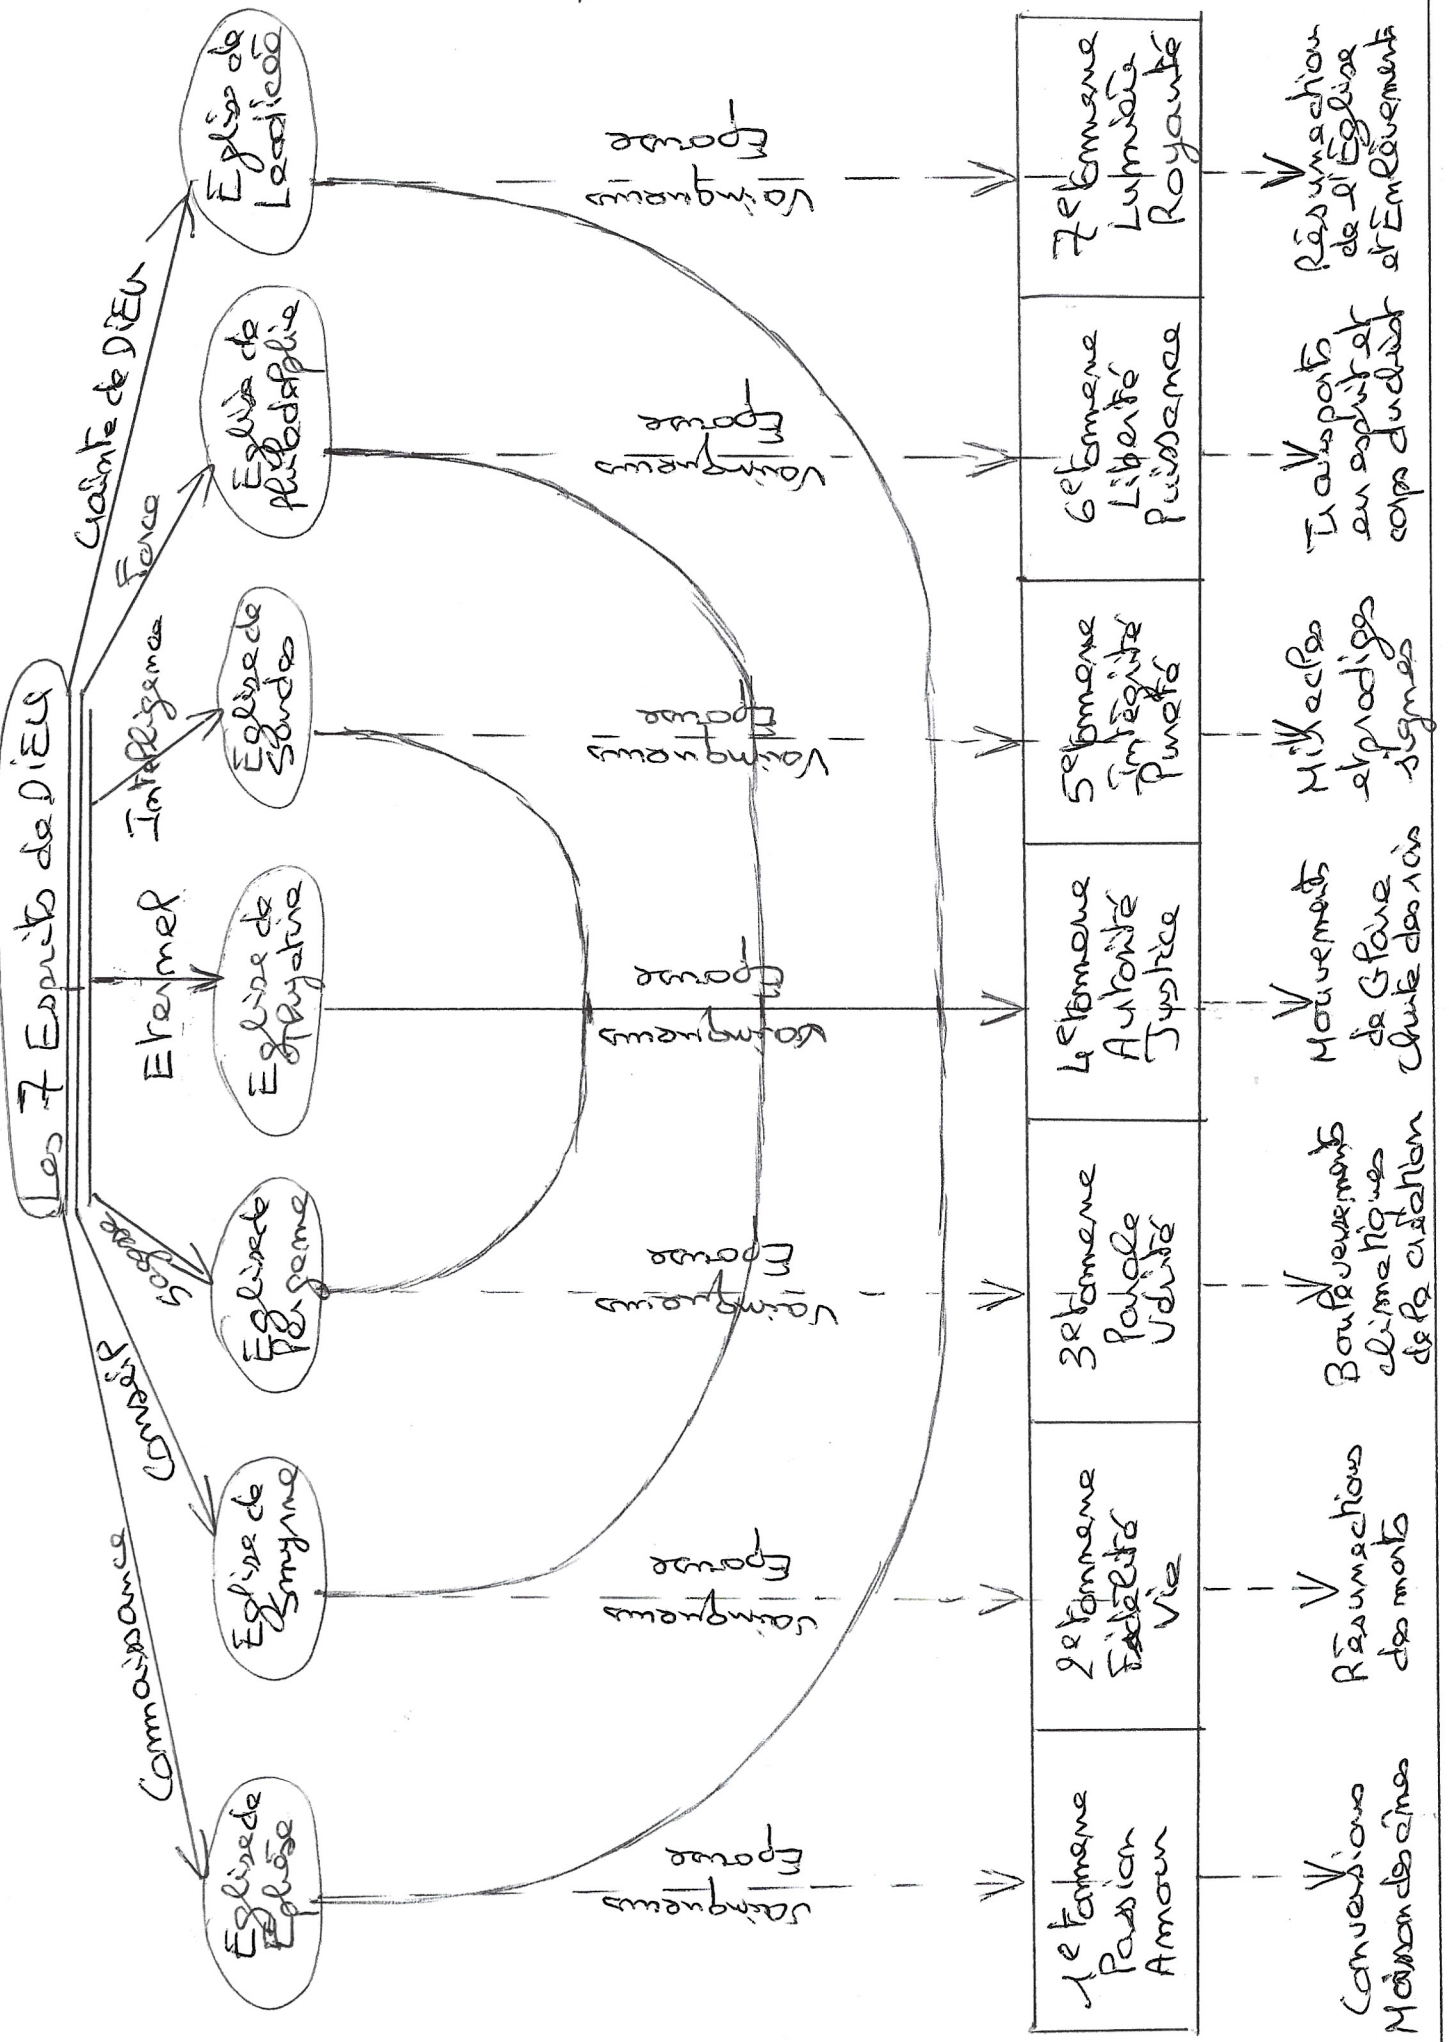 Les 7 Esprits de DIEU
Connaissance
Conseil
Sagesse
Eternel
Intelligence
Force
Crainte de DIEU
Eglise de
Ephèse
Eglise de
Smyrne
Eglise de
Pergame
Eglise de
Thyatire
Eglise de
Sardes
Eglise de
philadelphie
Eglise de
Laodicée
Vainqueurs
Epouse
Vainqueurs
Epouse
Vainqueurs
Epouse
Vainqueurs
Epouse
Vainqueurs
Epouse
Vainqueurs
Epouse
Vainqueurs
Epouse
1e tonnerre
Passion
Amour
2e tonnerre
Fidélité
Vie
3e tonnerre
Parole
Vérité
4e tonnerre
Autorité
Justice
5e tonnerre
intégrité
Pureté
6e tonnerre
Liberté
Puissance
7e tonnerre
Lumière
Royauté
Conversions
Moisson des âmes
Résurrections
des morts
Bouleversements
climatiques
de la création
Mouvements
de Gloire
chute des rois
Miracles
et prodiges
signes
Transports
en esprit et
corps du christ
Résurrection
de l'Eglise
et Enlèvement